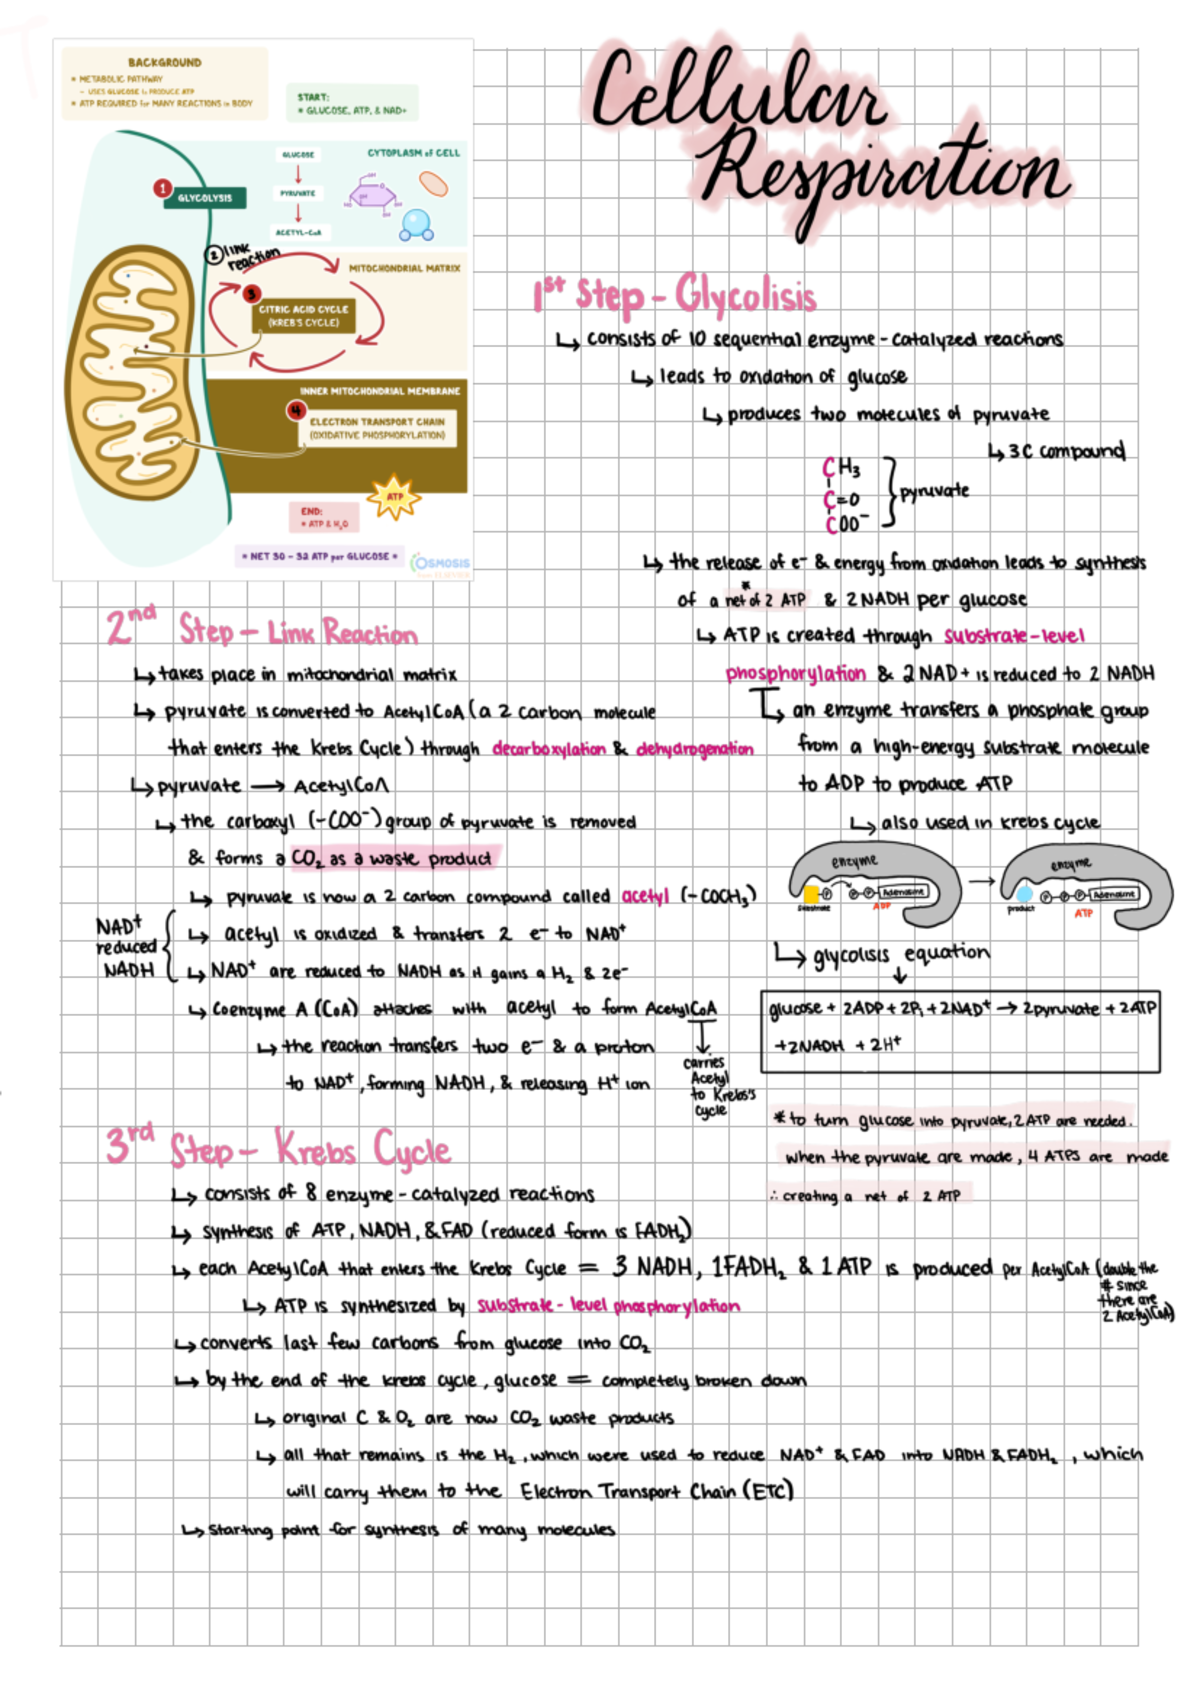 Cellular
Respiration
BACKGROUND
* METABOLIC PATHWAY
- USES GLUCOSE to PRODUCE ATP
* ATP REQUIRED for MANY REACTIONS in BODY
START:
* GLUCOSE, ATP, & NAD+
CYTOPLASM of CELL
GLUCOSE
PYRUVATE
ACETYL-CoA
1 GLYCOLYSIS
2 link
reaction
MITOCHONDRIAL MATRIX
3
CITRIC ACID CYCLE
(KREB'S CYCLE)
INNER MITOCHONDRIAL MEMBRANE
4
ELECTRON TRANSPORT CHAIN
(OXIDATIVE PHOSPHORYLATION)
ATP
END:
* ATP & H₂O
* NET 30 - 32 ATP per GLUCOSE *
OSMOSIS
from ELSEVIER
1st Step - Glycolisis
↳ consists of 10 sequential enzyme-catalyzed reactions
↳ leads to oxidation of glucose
↳ produces two molecules of pyruvate
↳ 3C compound
CH₃
C=O
COO⁻
pyruvate
↳ the release of e⁻ & energy from oxidation leads to synthesis
*
of a net of 2 ATP & 2 NADH per glucose
↳ ATP is created through substrate-level
phosphorylation & 2 NAD+ is reduced to 2 NADH
↳ an enzyme transfers a phosphate group
from a high-energy substrate molecule
to ADP to produce ATP
↳ also used in krebs cycle
enzyme
substrate
P
P P Adenosine
ADP
→
enzyme
product
P P P Adenosine
ATP
↳ glycolisis equation
↓
glucose + 2ADP + 2Pi + 2NAD⁺ → 2pyruvate + 2ATP
+2NADH + 2H⁺
* to turn glucose into pyruvate, 2 ATP are needed.
when the pyruvate are made, 4 ATPS are made
∴ creating a net of 2 ATP
2nd Step - Link Reaction
↳ takes place in mitochondrial matrix
↳ pyruvate is converted to AcetylCoA (a 2 carbon molecule
that enters the Krebs Cycle) through decarboxylation & dehydrogenation
↳ pyruvate → AcetylCoA
↳ the carboxyl (-COO⁻) group of pyruvate is removed
& forms a CO₂ as a waste product
↳ pyruvate is now a 2 carbon compound called acetyl (-COCH₃)
NAD⁺
reduced
NADH
↳ acetyl is oxidized & transfers 2 e⁻ to NAD⁺
↳ NAD⁺ are reduced to NADH as it gains a H₂ & 2e⁻
↳ Coenzyme A (CoA) attaches with acetyl to form AcetylCoA
carries
Acetyl
to Krebs's
Cycle
↳ the reaction transfers two e⁻ & a proton
to NAD⁺, forming NADH, & releasing H⁺ ion
3rd Step - Krebs Cycle
↳ consists of 8 enzyme-catalyzed reactions
↳ synthesis of ATP, NADH, & FAD (reduced form is FADH₂)
↳ each AcetylCoA that enters the Krebs Cycle = 3 NADH, 1 FADH₂ & 1 ATP is produced per AcetylCoA (double the
# since
there are
2 AcetylCoA)
↳ ATP is synthesized by substrate-level phosphorylation
↳ converts last few carbons from glucose into CO₂
↳ by the end of the krebs cycle, glucose = completely broken down
↳ original C & O₂ are now CO₂ waste products
↳ all that remains is the H₂, which were used to reduce NAD⁺ & FAD into NADH & FADH₂, which
will carry them to the Electron Transport Chain (ETC)
↳ starting point for synthesis of many molecules